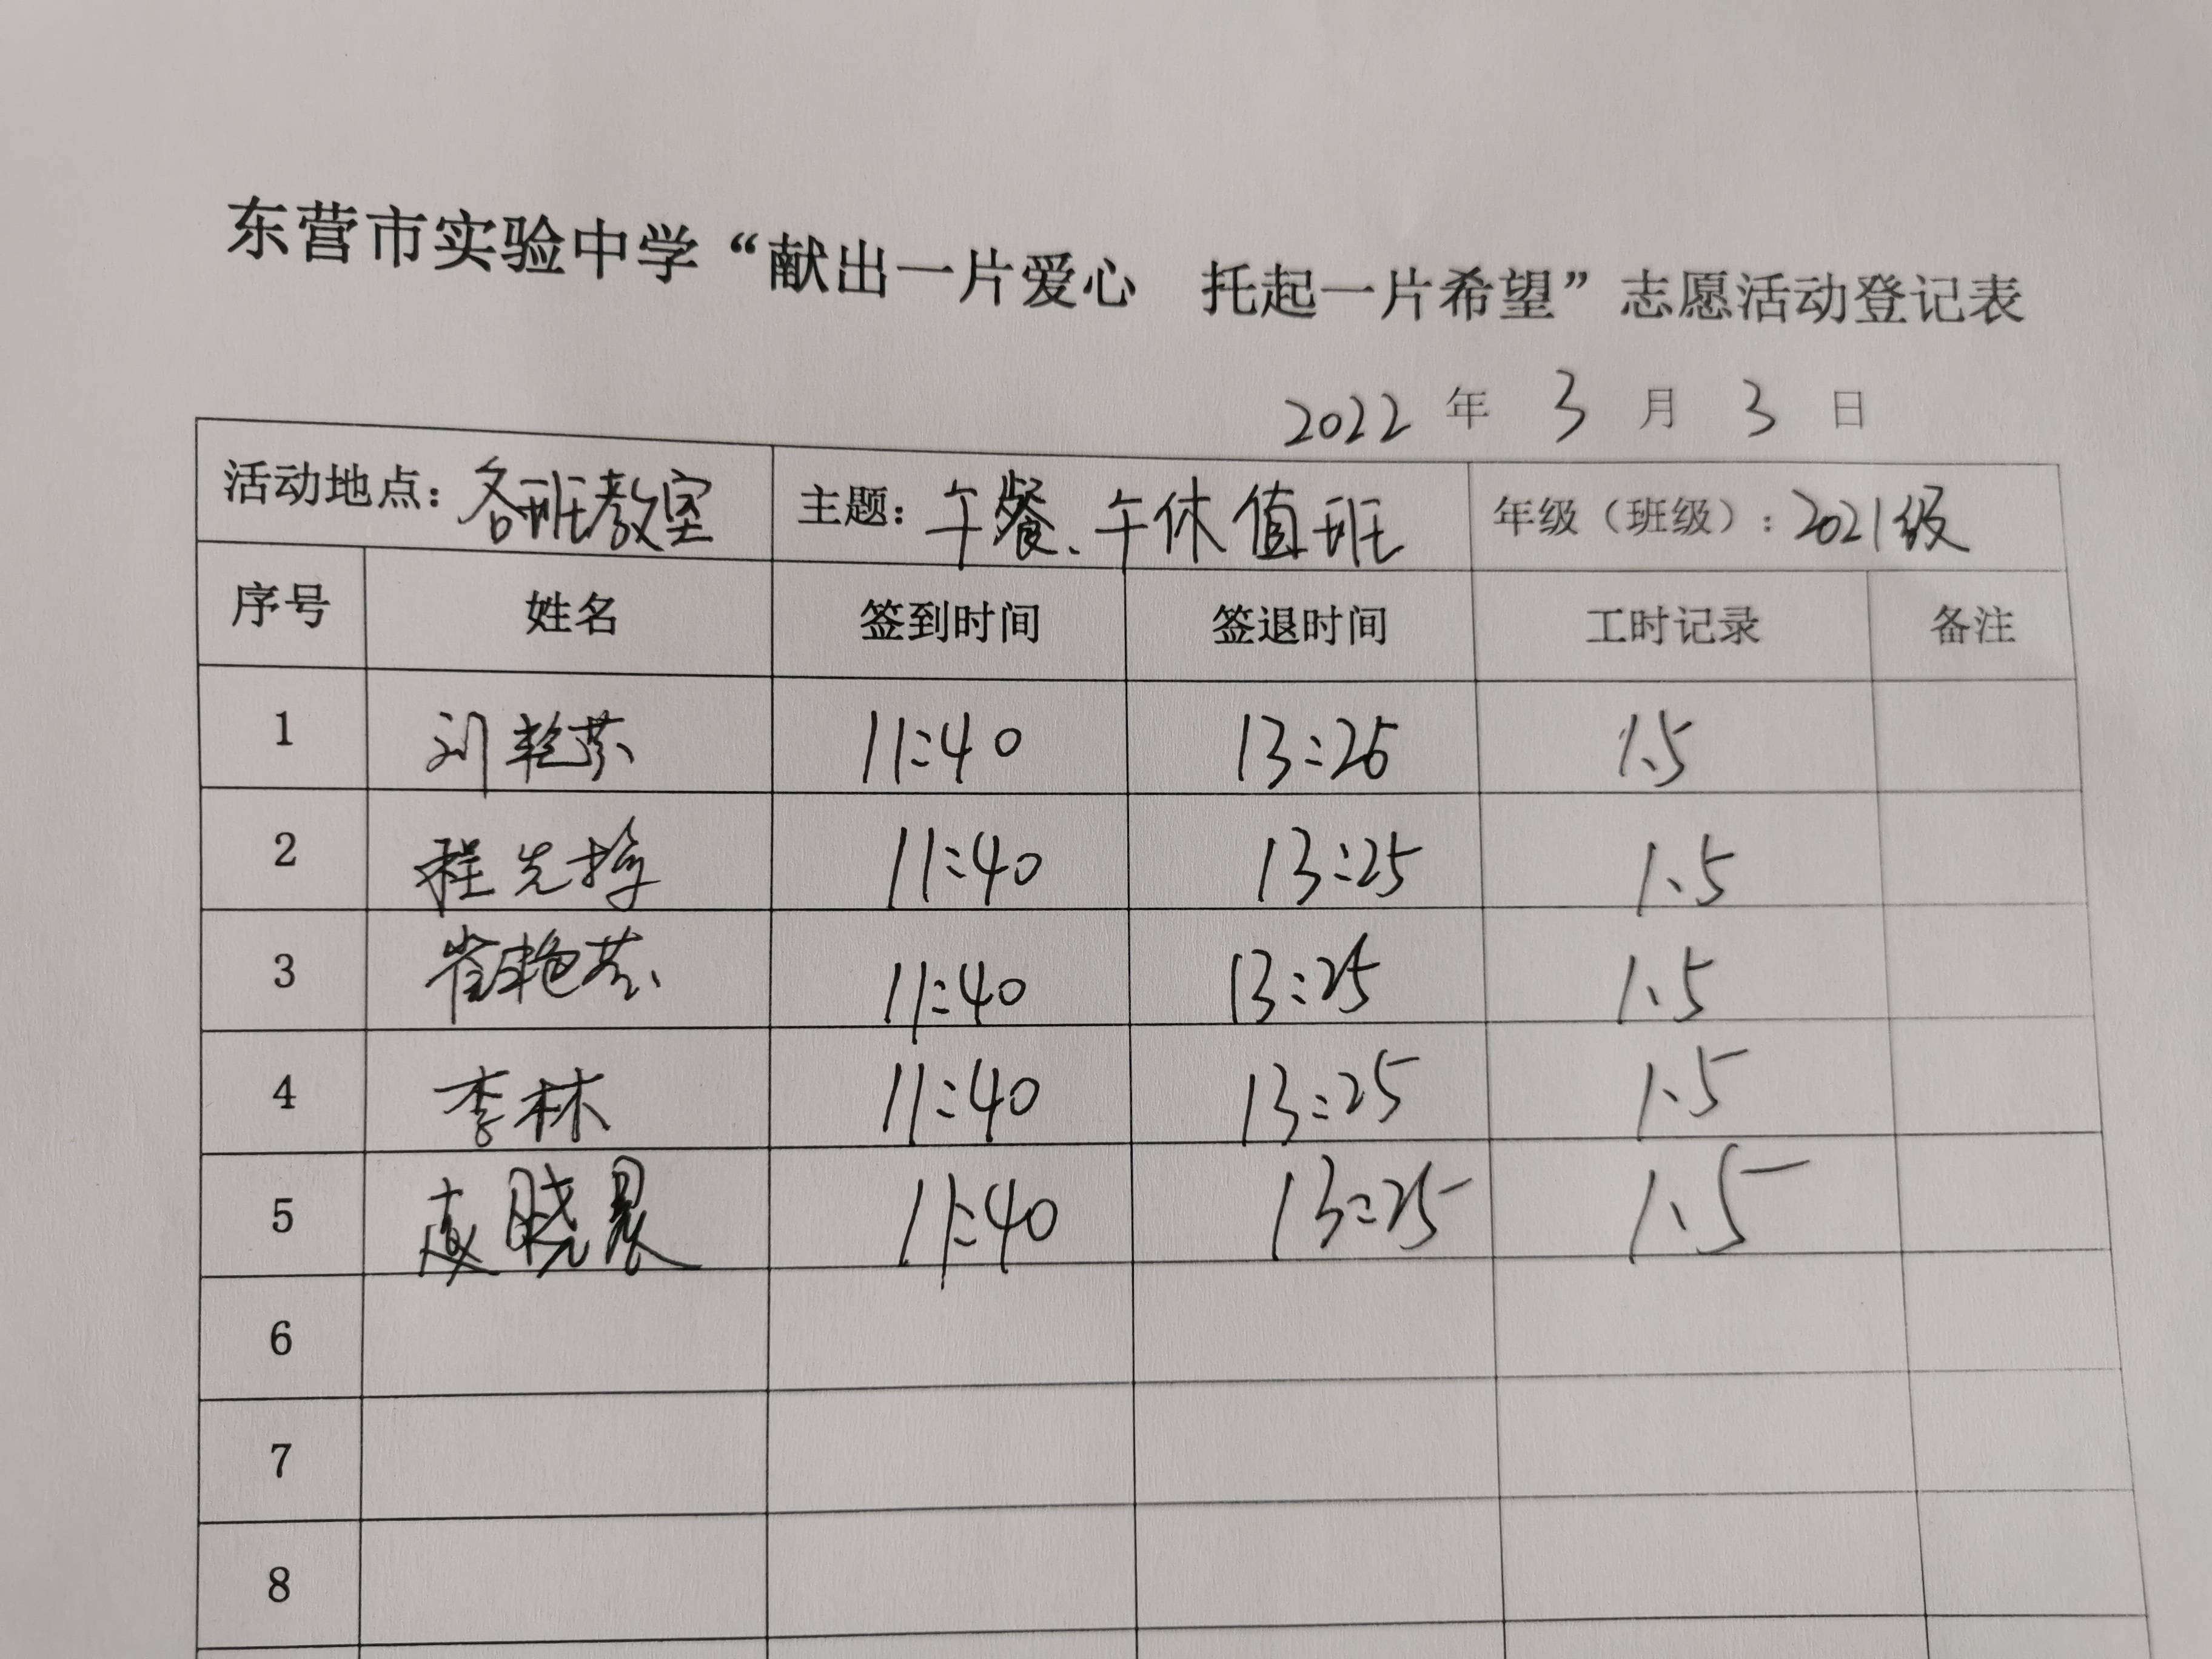 东营市实验中学“献出一片爱心 托起一片希望”志愿活动登记表
2022 年 3 月 3 日
活动地点：各班教室 主题：午餐、午休值班 年级（班级）：2021级
序号 姓名 签到时间 签退时间 工时记录 备注
1 刘艳芬 11:40 13:25 1.5
2 程先 11:40 13:25 1.5
3 崔艳芬 11:40 13:25 1.5
4 李林 11:40 13:25 1.5
5 赵晓晨 11:40 13:25 1.5
6
7
8